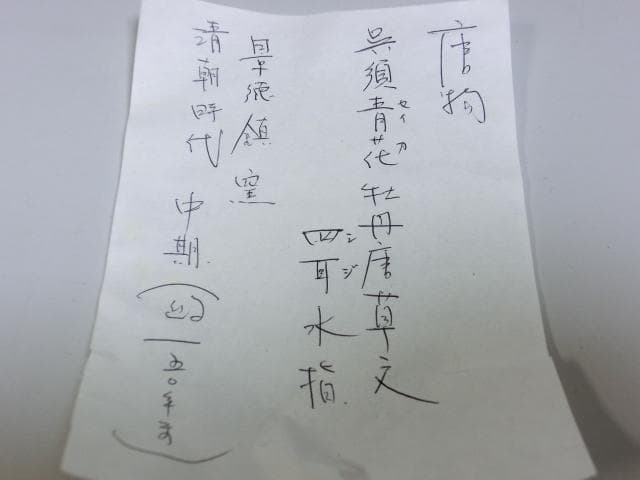 唐物
呉須青花牡丹唐草文
セイカ
四耳水指
シジ
景徳鎮窯
清朝時代 中期 (約一五〇年前)